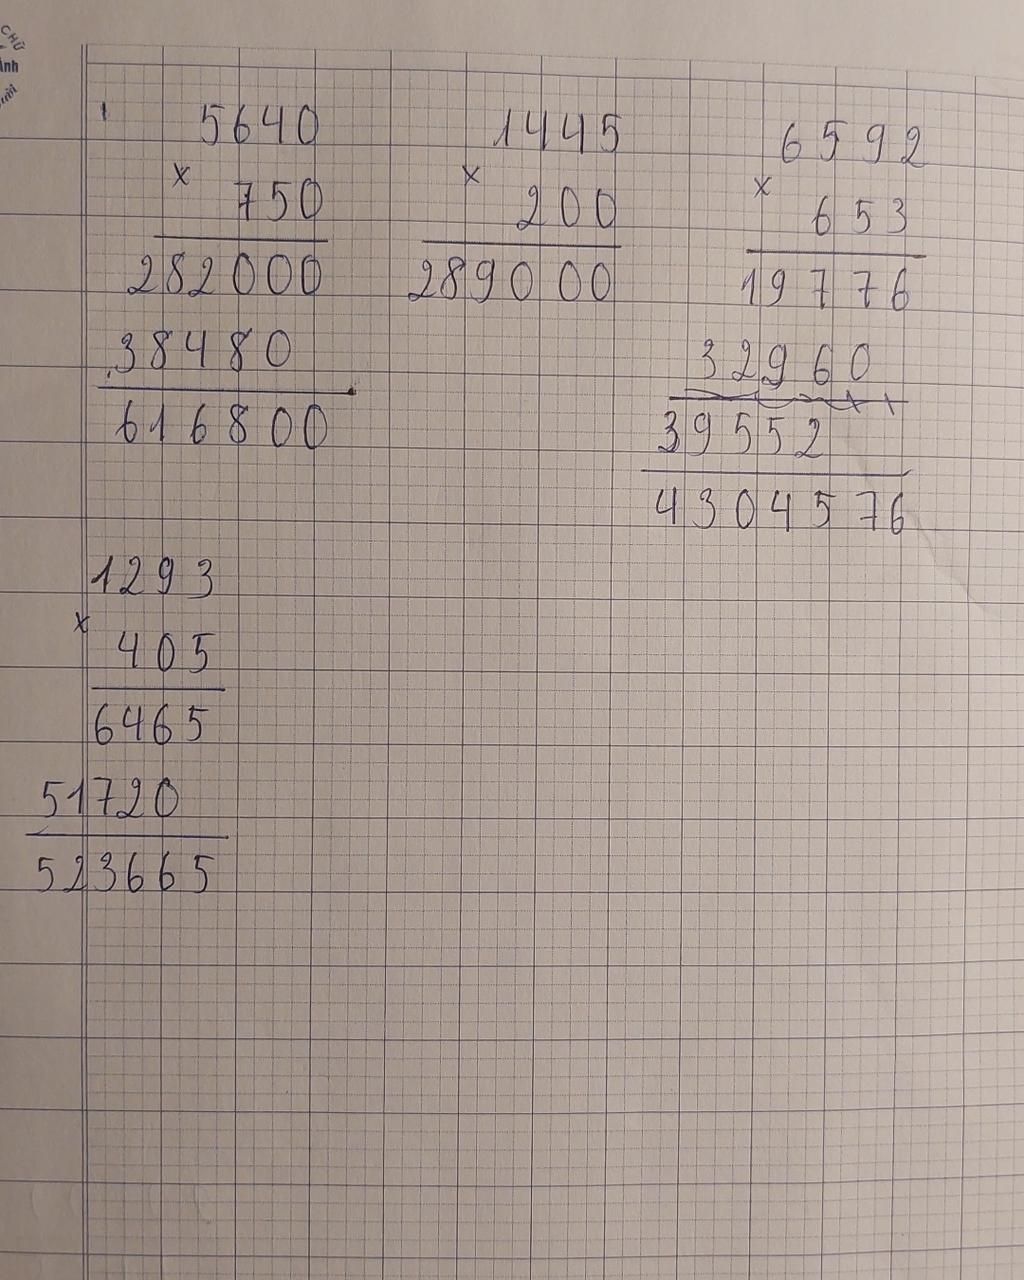 CHỮ
Ánh
5640
x
750
282000
38480
616800
1445
x
200
289000
6592
x
653
19776
32960
39552
4304576
1293
x
405
6465
51720
523665